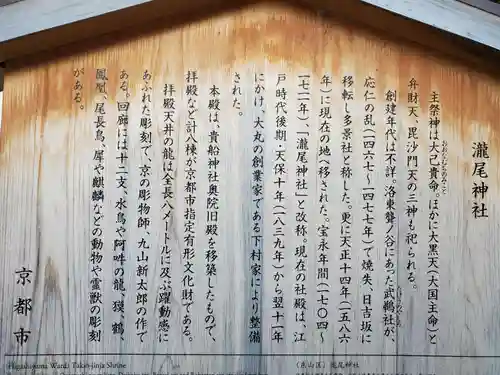 瀧尾神社
主祭神は大己貴命。ほかに大黒天（大国主命）と
おおなむちのみこと
弁財天、毘沙門天の三神も祀られる。
創建年代は不詳。洛東聾ノ谷にあった武鵜社が、
応仁の乱（一四六七〜一四七七年）で焼失、日吉坂に
移転し多景社と称した。更に天正十四年（一五八六
年）に現在の地へ移された。宝永年間（一七〇四〜
一七一一）「瀧尾神社」と改称。現在の社殿は、江
戸時代後期・天保十年（一八三九年）から翌十一年
にかけ、大丸の創業家である下村家により整備
された。
本殿は、貴船神社奥院旧殿を移築したもので、
拝殿など計八棟が京都市指定有形文化財である。
拝殿天井の龍は全長八メートルに及ぶ躍動感に
あふれた彫刻で、京の彫物師、九山新太郎の作で
ある。回廊には十二支、水鳥や阿吽の龍、獏、鶴、
鳳凰、尾長鳥、犀や麒麟などの動物や霊獣の彫刻
がある。
京都市
(Higashiyama Ward) Takio-jinja Shrine
（东山区）瀧尾神社